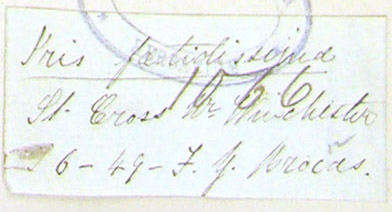 Iris fœtidissima
1066
St. Cross Nr. Winchester
6-49- F. Y. Brocas.